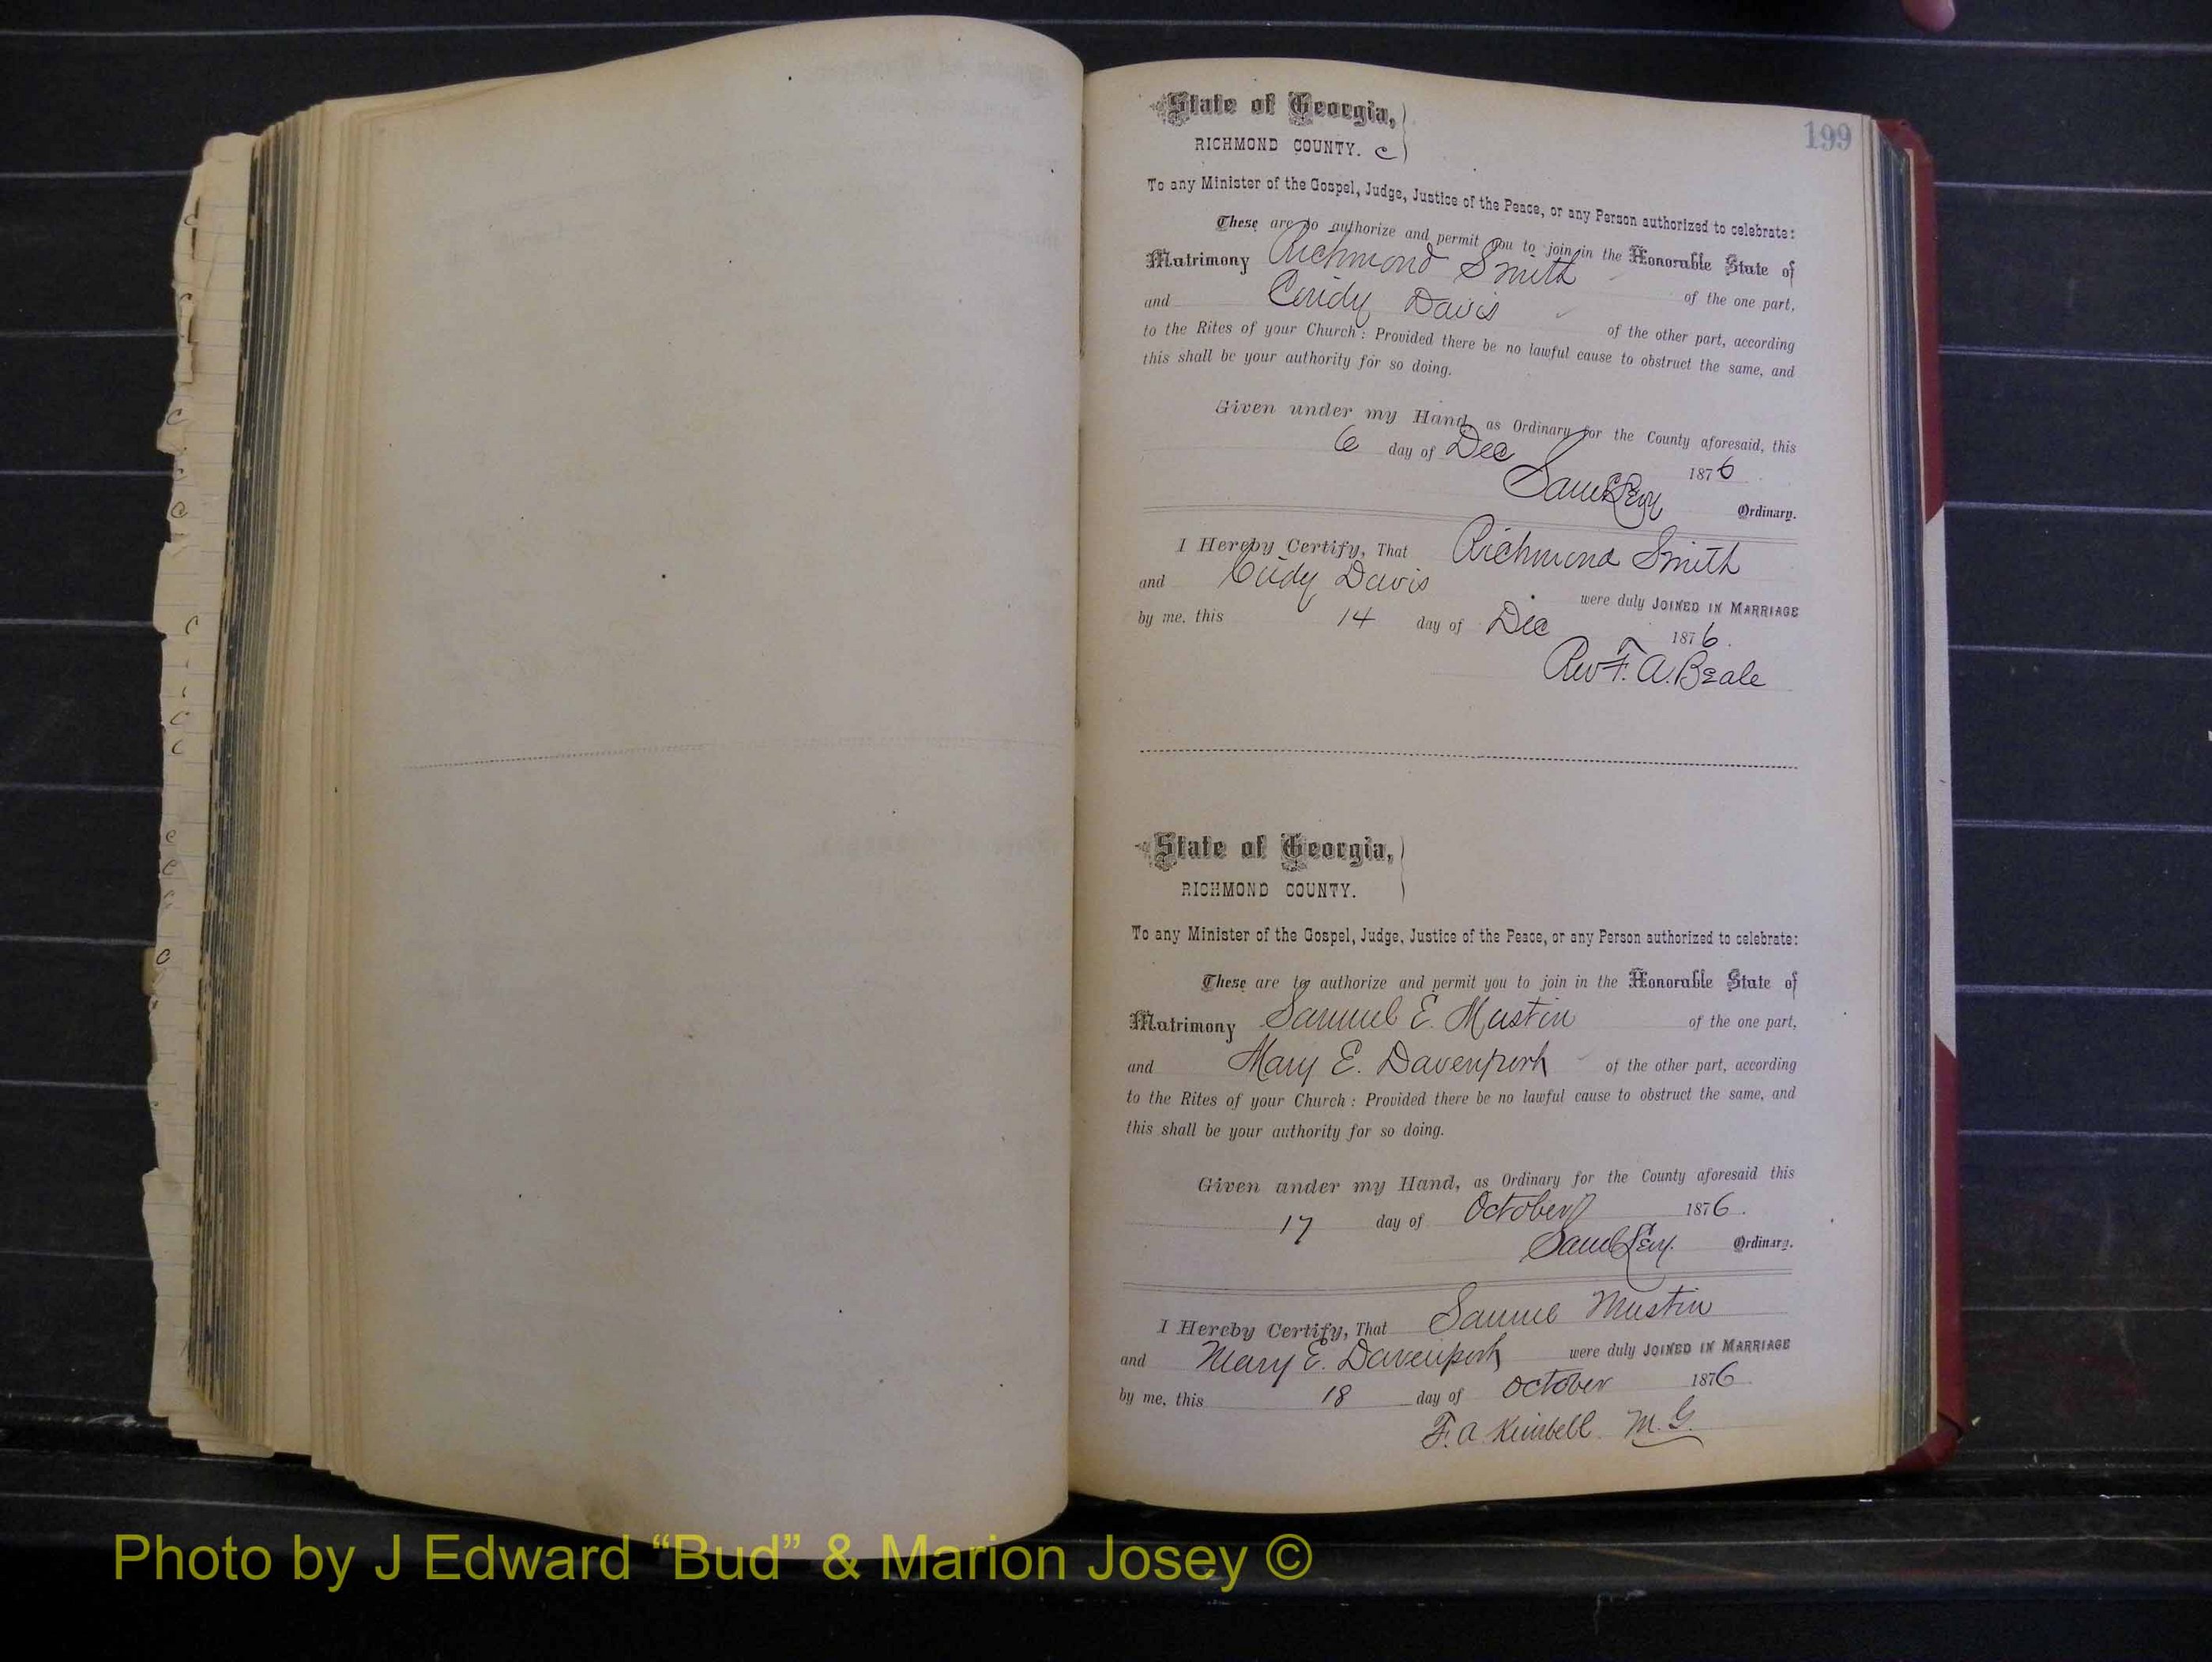 199
State of Georgia,
RICHMOND COUNTY. C
To any Minister of the Gospel, Judge, Justice of the Peace, or any Person authorized to celebrate:
These are to authorize and permit you to join in the Honorable State of
Matrimony Richmond Smith of the one part,
and Cindy Davis of the other part, according
to the Rites of your Church: Provided there be no lawful cause to obstruct the same, and
this shall be your authority for so doing.
Given under my Hand, as Ordinary for the County aforesaid, this
6 day of Dec 1876
Saml Levy Ordinary.
I Hereby Certify, That Richmond Smith
and Cindy Davis were duly JOINED IN MARRIAGE
by me, this 14 day of Dec 1876.
Rev F. A. Beale
State of Georgia,
RICHMOND COUNTY.
To any Minister of the Gospel, Judge, Justice of the Peace, or any Person authorized to celebrate:
These are to authorize and permit you to join in the Honorable State of
Matrimony Samuel E. Mustin of the one part,
and Mary E. Davenport of the other part, according
to the Rites of your Church: Provided there be no lawful cause to obstruct the same, and
this shall be your authority for so doing.
Given under my Hand, as Ordinary for the County aforesaid this
17 day of October 1876.
Saml Levy. Ordinary.
I Hereby Certify, That Samuel Mustin
and Mary E. Davenport were duly JOINED IN MARRIAGE
by me, this 18 day of October 1876.
F. A. Kimbell M. G.
Photo by J Edward “Bud” & Marion Josey ©